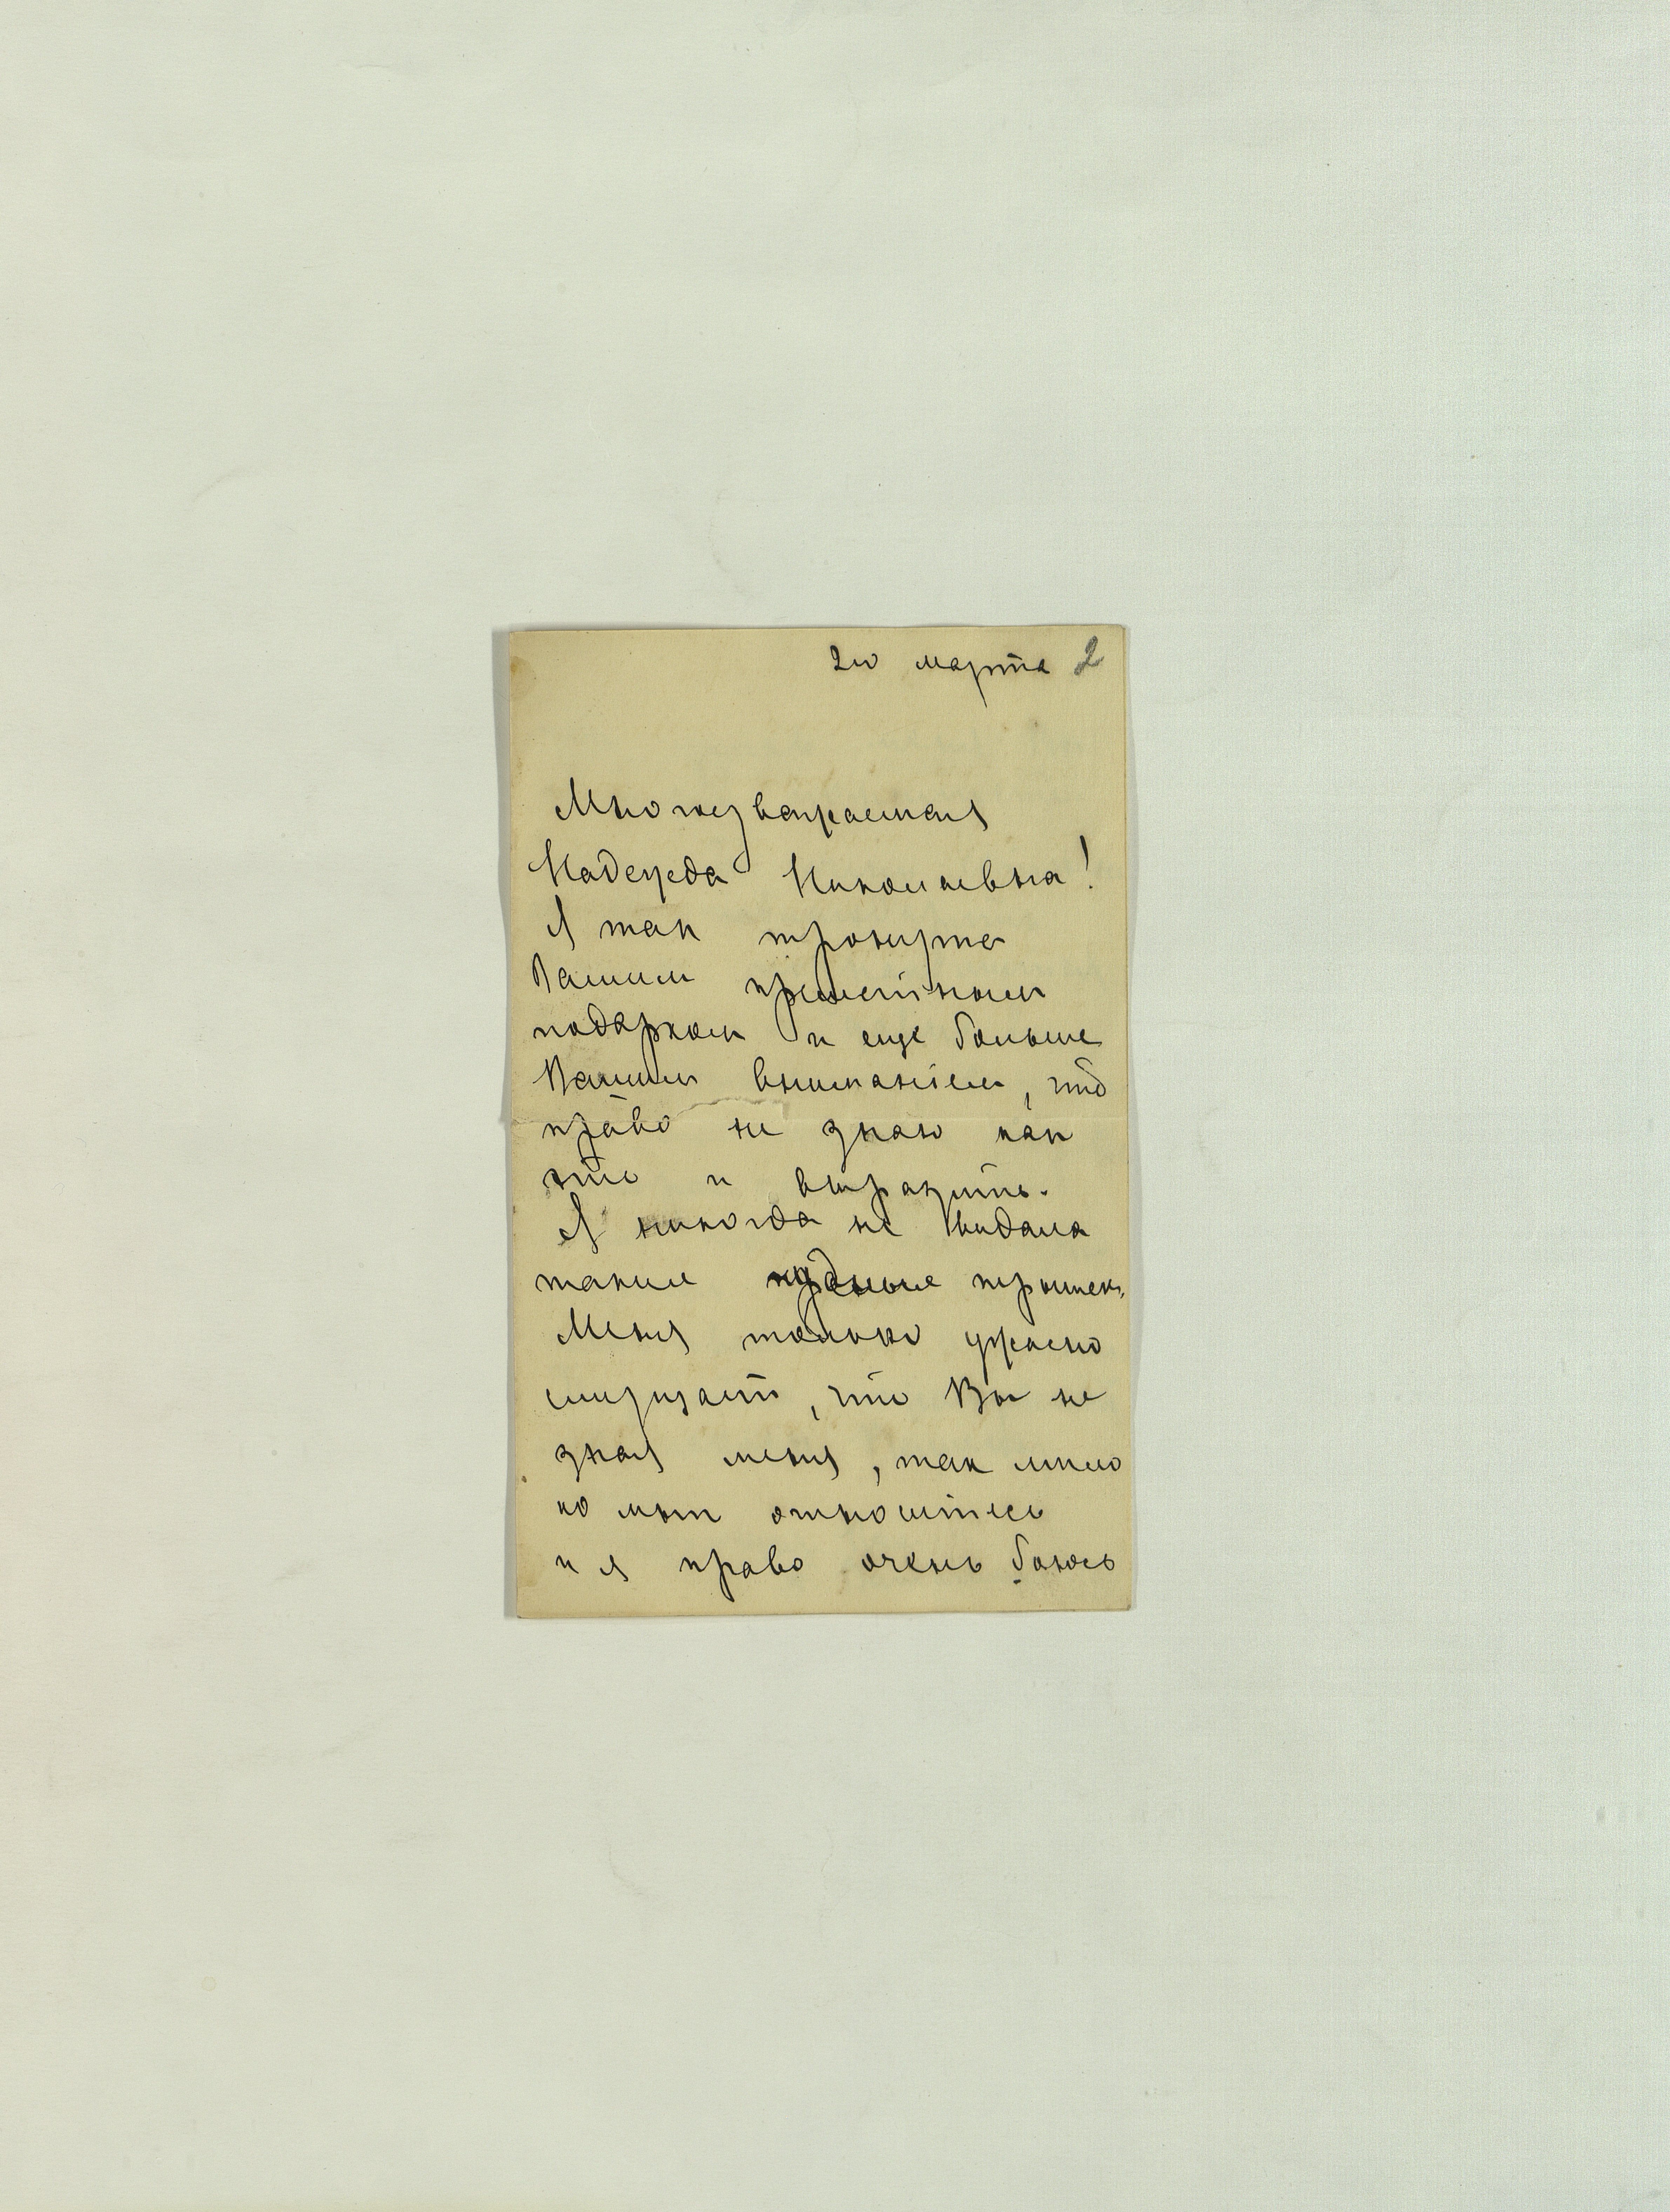 2го марта 2
Многоуважаемая
Надежда Николаевна!
Я так тронута
Вашим прелестным
подарком и еще больше
Вашим вниманіем, что
право не знаю как
это и выразить.
Я никогда не видала
такие чудные
Меня только ужасно
смущает, что Вы не
зная меня, так мило
ко мне относитесь
и я право очень боюсь